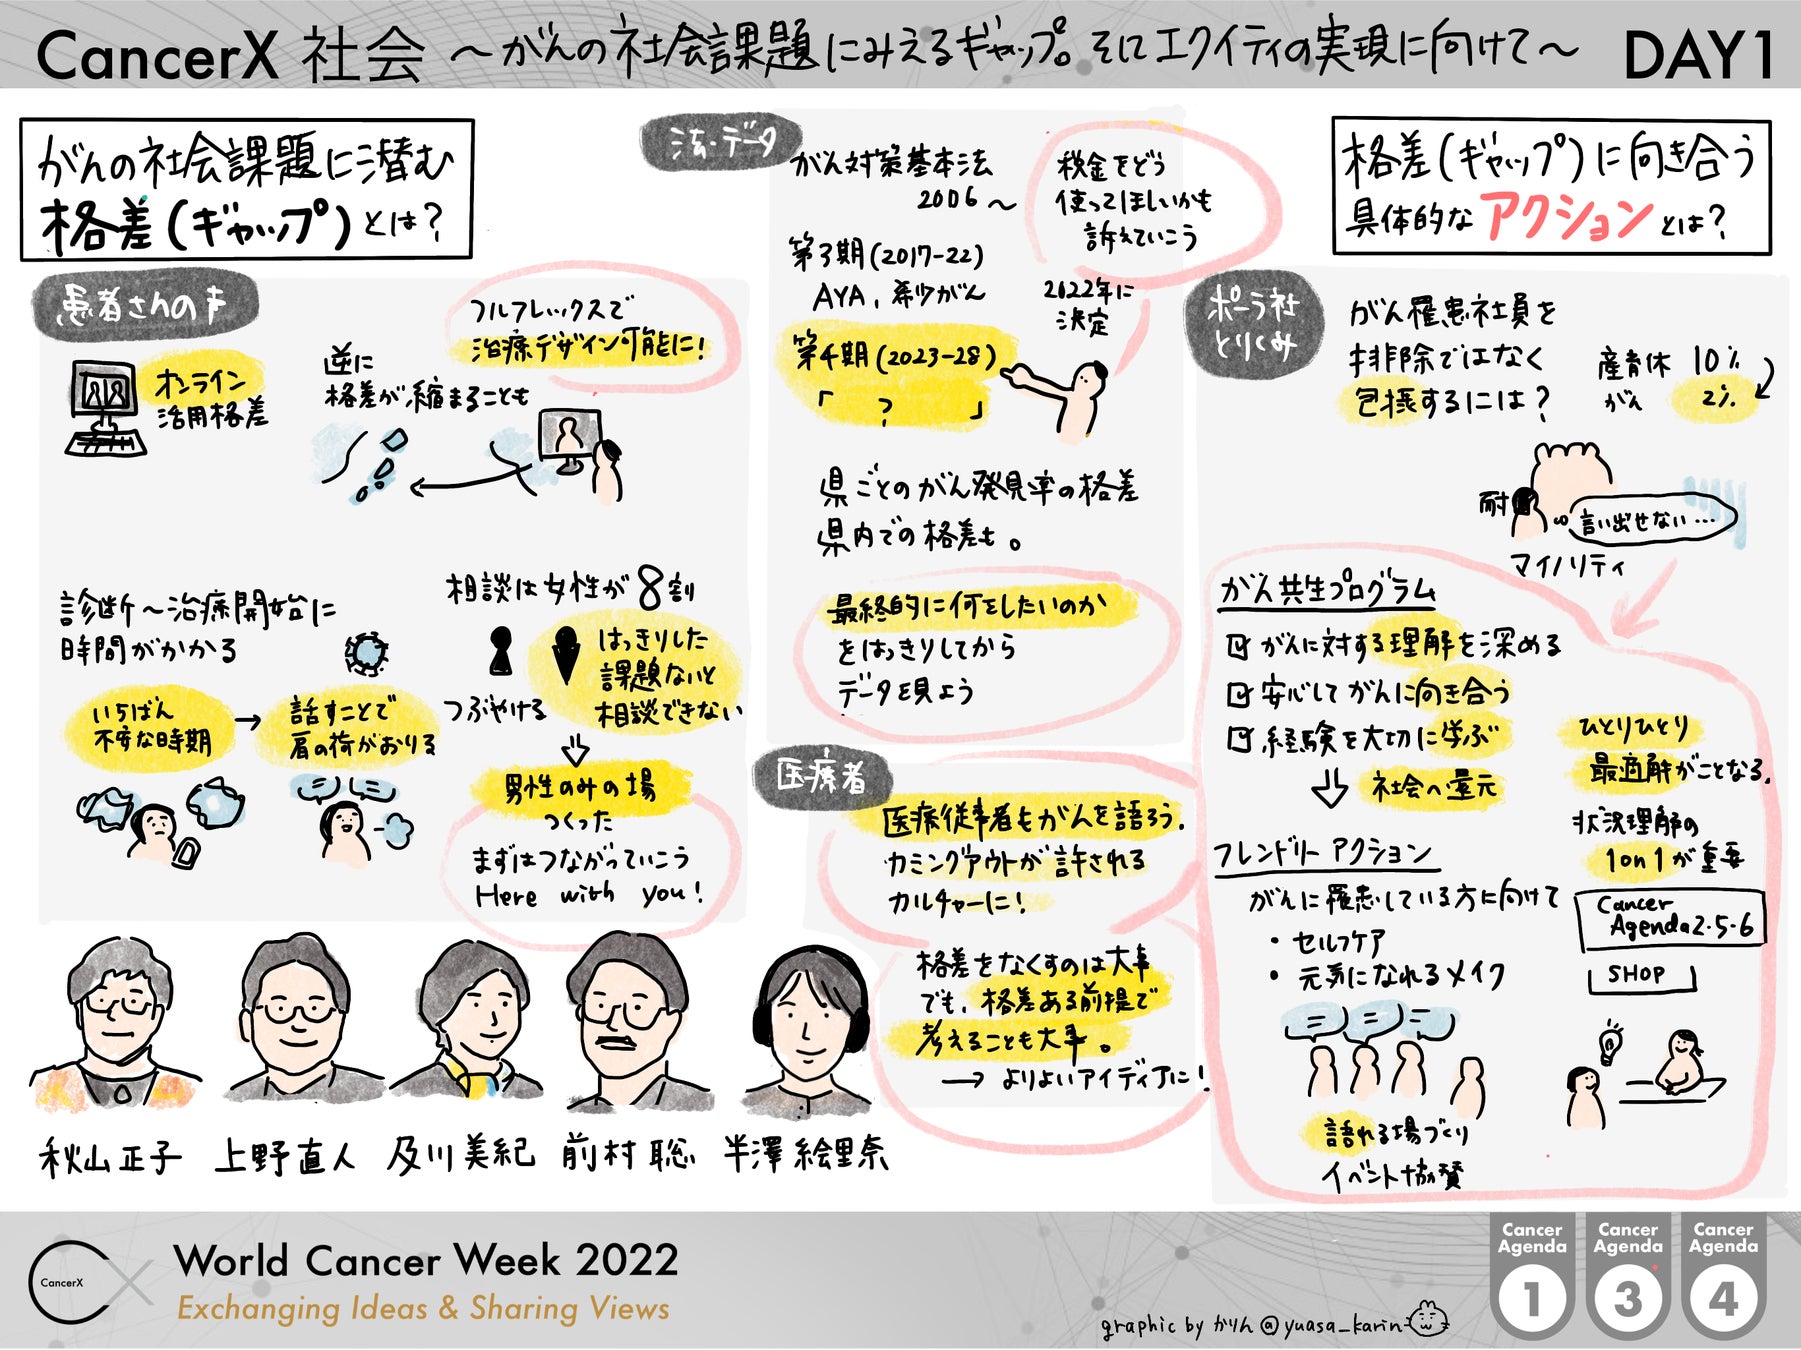 CancerX 社会 〜がんの社会課題にみえるギャップ。そしてエクイティの実現に向けて〜 DAY1
がんの社会課題に潜む
格差(ギャップ)とは？
患者さんの声
オンライン
活用格差
逆に
格差が縮まることも
フルフレックスで
治療デザイン可能に！
診断〜治療開始に
時間がかかる
いちばん
不安な時期
→
話すことで
肩の荷がおりる
相談は女性が8割
つぶやける
はっきりした
課題ないと
相談できない
男性のみの場
つくった
まずはつながっていこう
Here with you!
法・データ
がん対策基本法
2006〜
税金をどう
使ってほしいかも
訴えていこう
第3期(2017-22)
AYA、希少がん
2022年に
決定
第4期(2023-28)
「　？　」
県ごとのがん発見率の格差
県内での格差も。
最終的に何をしたいのか
をはっきりしてから
データを見よう
医療者
医療従事者もがんを語ろう。
カミングアウトが許される
カルチャーに！
格差をなくすのは大事
でも、格差ある前提で
考えることも大事。
→ よりよいアイディアに！
格差(ギャップ)に向き合う
具体的なアクションとは？
ポーラ社
とりくみ
がん罹患社員を
排除ではなく
包摂するには？
産育休 10%
がん 2%
耐
言い出せない…
マイノリティ
がん共生プログラム
がんに対する理解を深める
安心してがんに向き合う
経験を大切に学ぶ
社会へ還元
ひとりひとり
最適解がことなる。
状況理解の
1on1が重要
フレンドリーアクション
がんに罹患している方に向けて
・セルフケア
・元気になれるメイク
Cancer
Agenda2・5・6
SHOP
語れる場づくり
イベント協賛
秋山正子
上野直人
及川美紀
前村聡
半澤絵里奈
CancerX
World Cancer Week 2022
Exchanging Ideas & Sharing Views
graphic by かりん@yuasa_karin
Cancer
Agenda
1
Cancer
Agenda
3
Cancer
Agenda
4